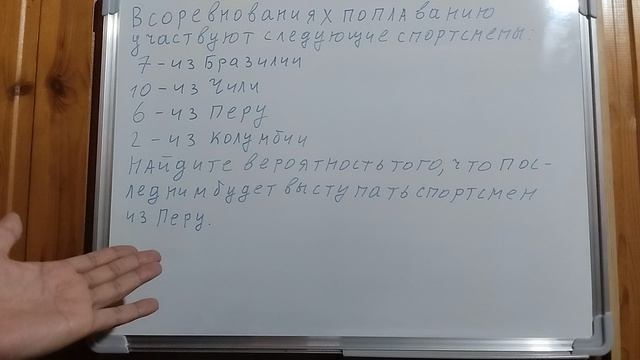 В соревнованиях по плаванию
участвуют следующие спортсмены:
7 - из Бразилии
10 - из Чили
6 - из Перу
2 - из Колумбии
Найдите вероятность того, что пос-
ледним будет выступать спортсмен
из Перу.